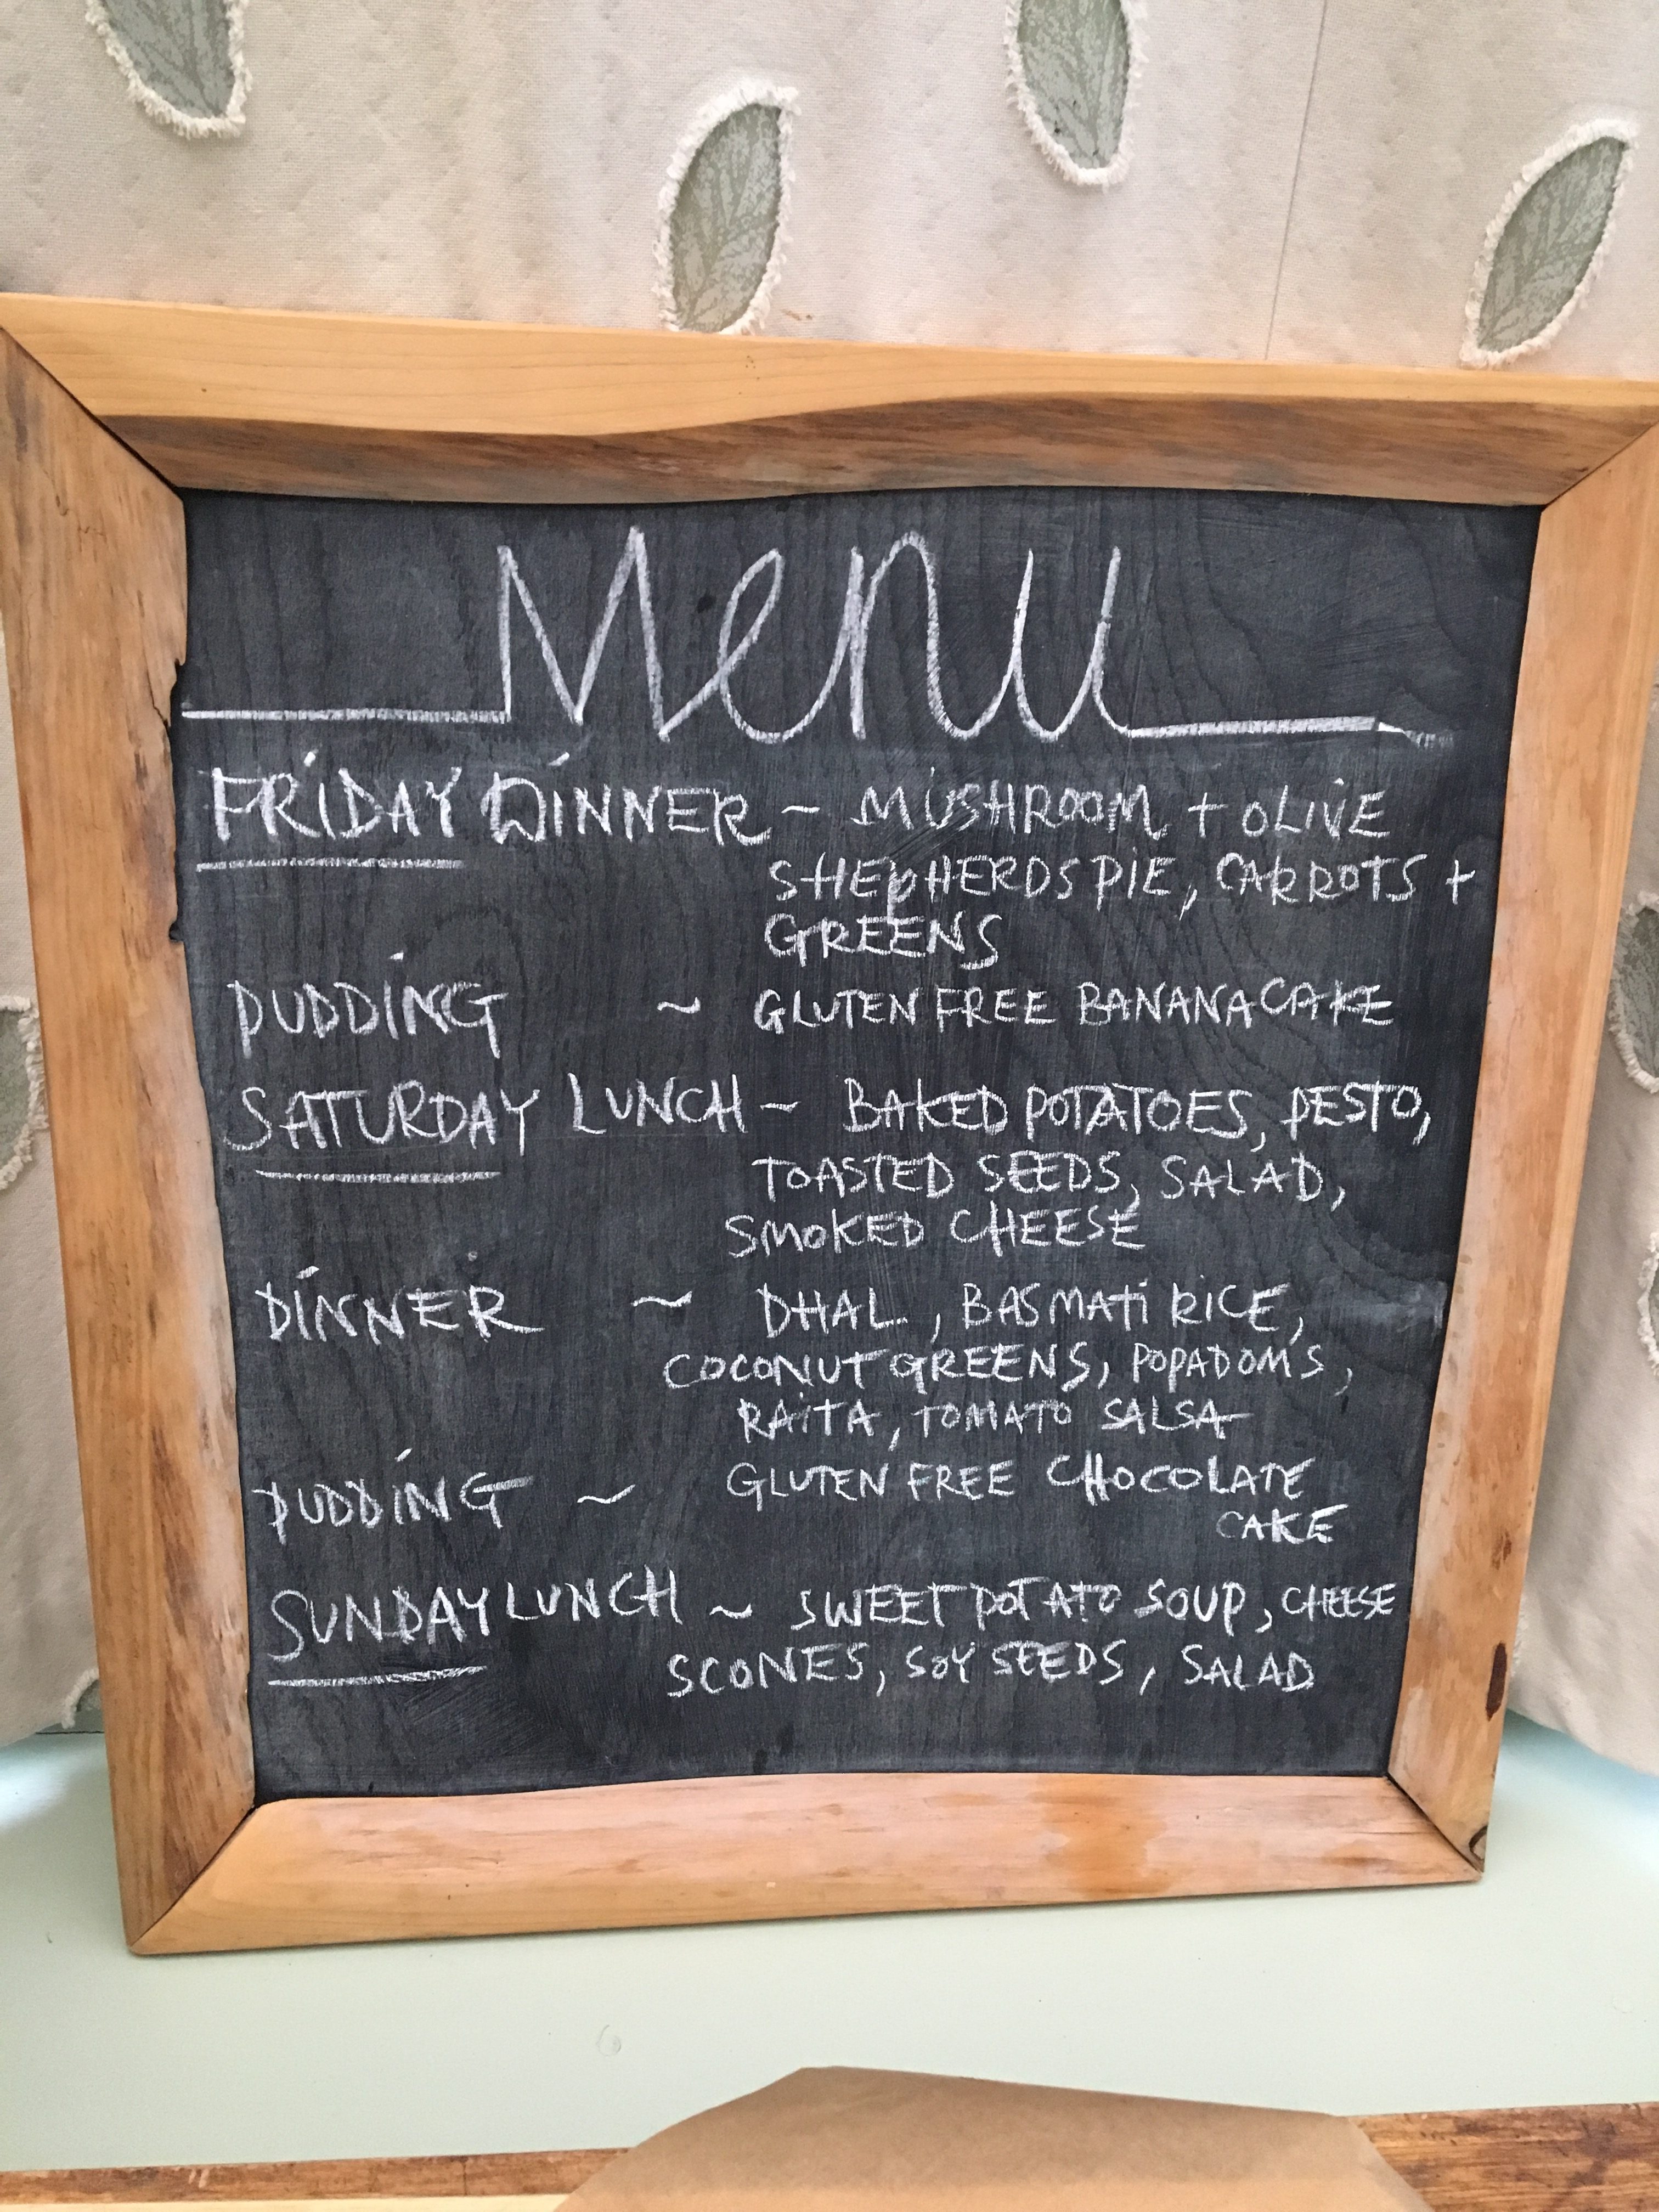 Menu
FRIDAY DINNER ~ MUSHROOM + OLIVE
SHEPHERDS PIE, CARROTS +
GREENS
PUDDING ~ GLUTEN FREE BANANA CAKE
SATURDAY LUNCH ~ BAKED POTATOES, PESTO,
TOASTED SEEDS, SALAD,
SMOKED CHEESE
DINNER ~ DHAL, BASMATI RICE,
COCONUT GREENS, POPADOMS,
RAITA, TOMATO SALSA
PUDDING ~ GLUTEN FREE CHOCOLATE
CAKE
SUNDAY LUNCH ~ SWEET POTATO SOUP, CHEESE
SCONES, SOY SEEDS, SALAD